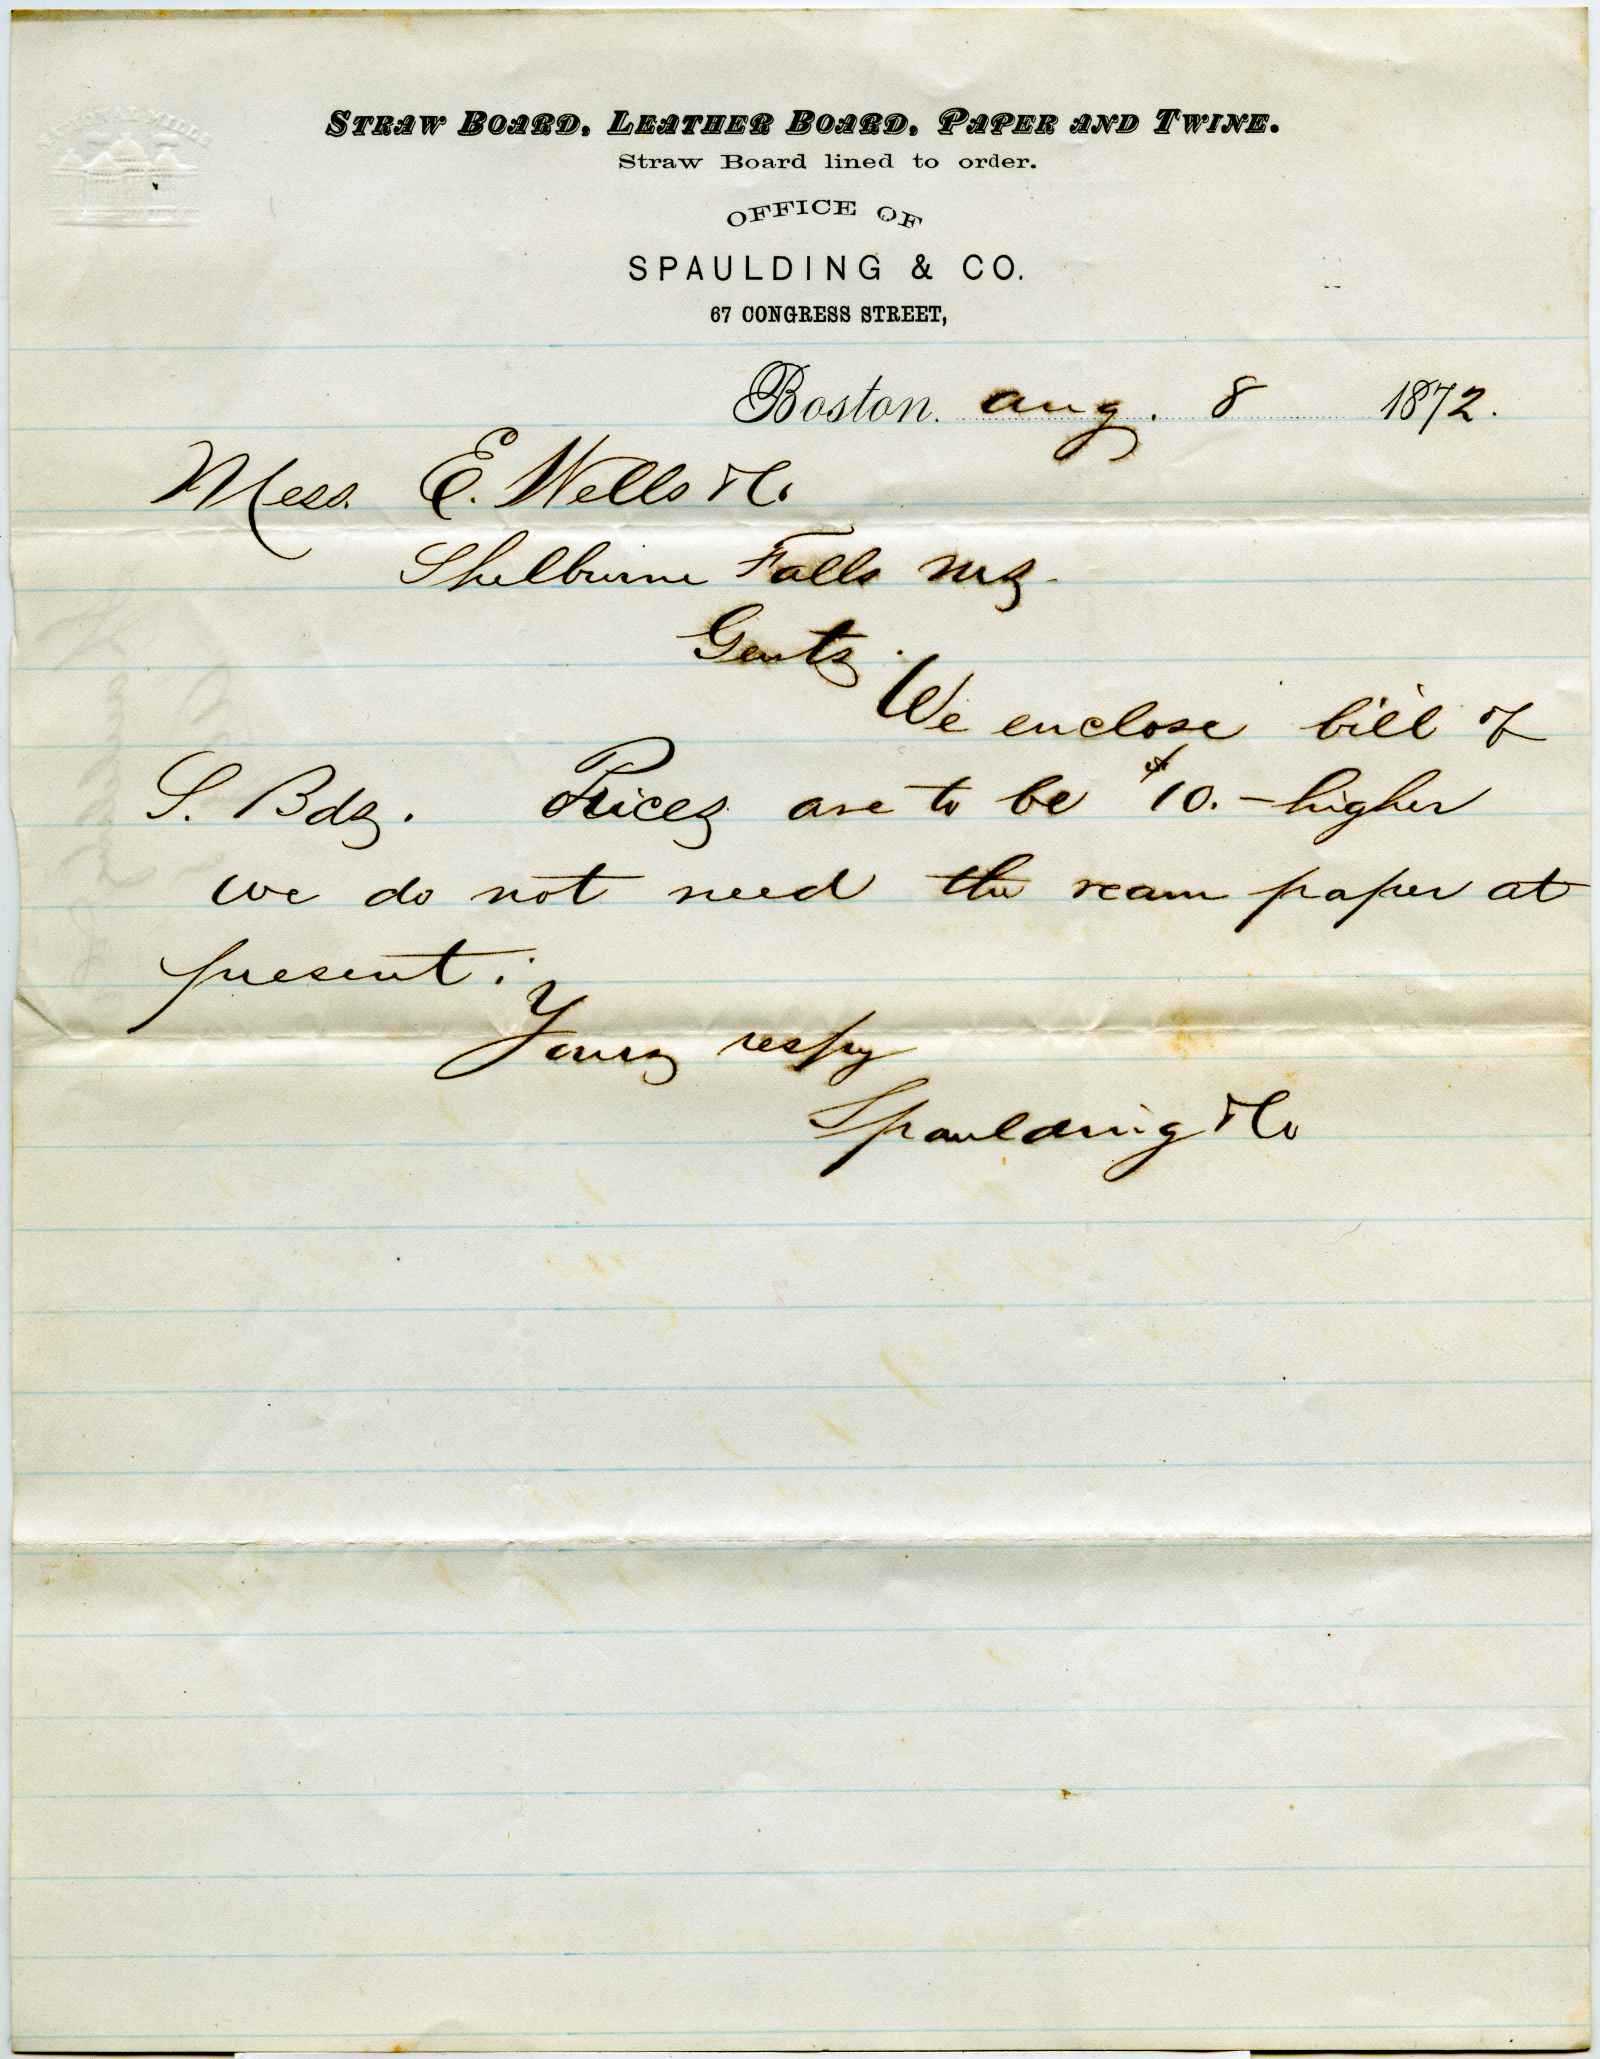 STRAW BOARD, LEATHER BOARD, PAPER AND TWINE.
Straw Board lined to order.
OFFICE OF
SPAULDING & CO.
67 CONGRESS STREET,
Boston. Aug. 8 1872.
Mess. E. Wells & Co
Shelburne Falls Ms.
Gents.
We enclose bill of
S. Bds. Prices are to be $10.- higher
we do not need the ream paper at
present.
Yours respy
Spaulding & Co